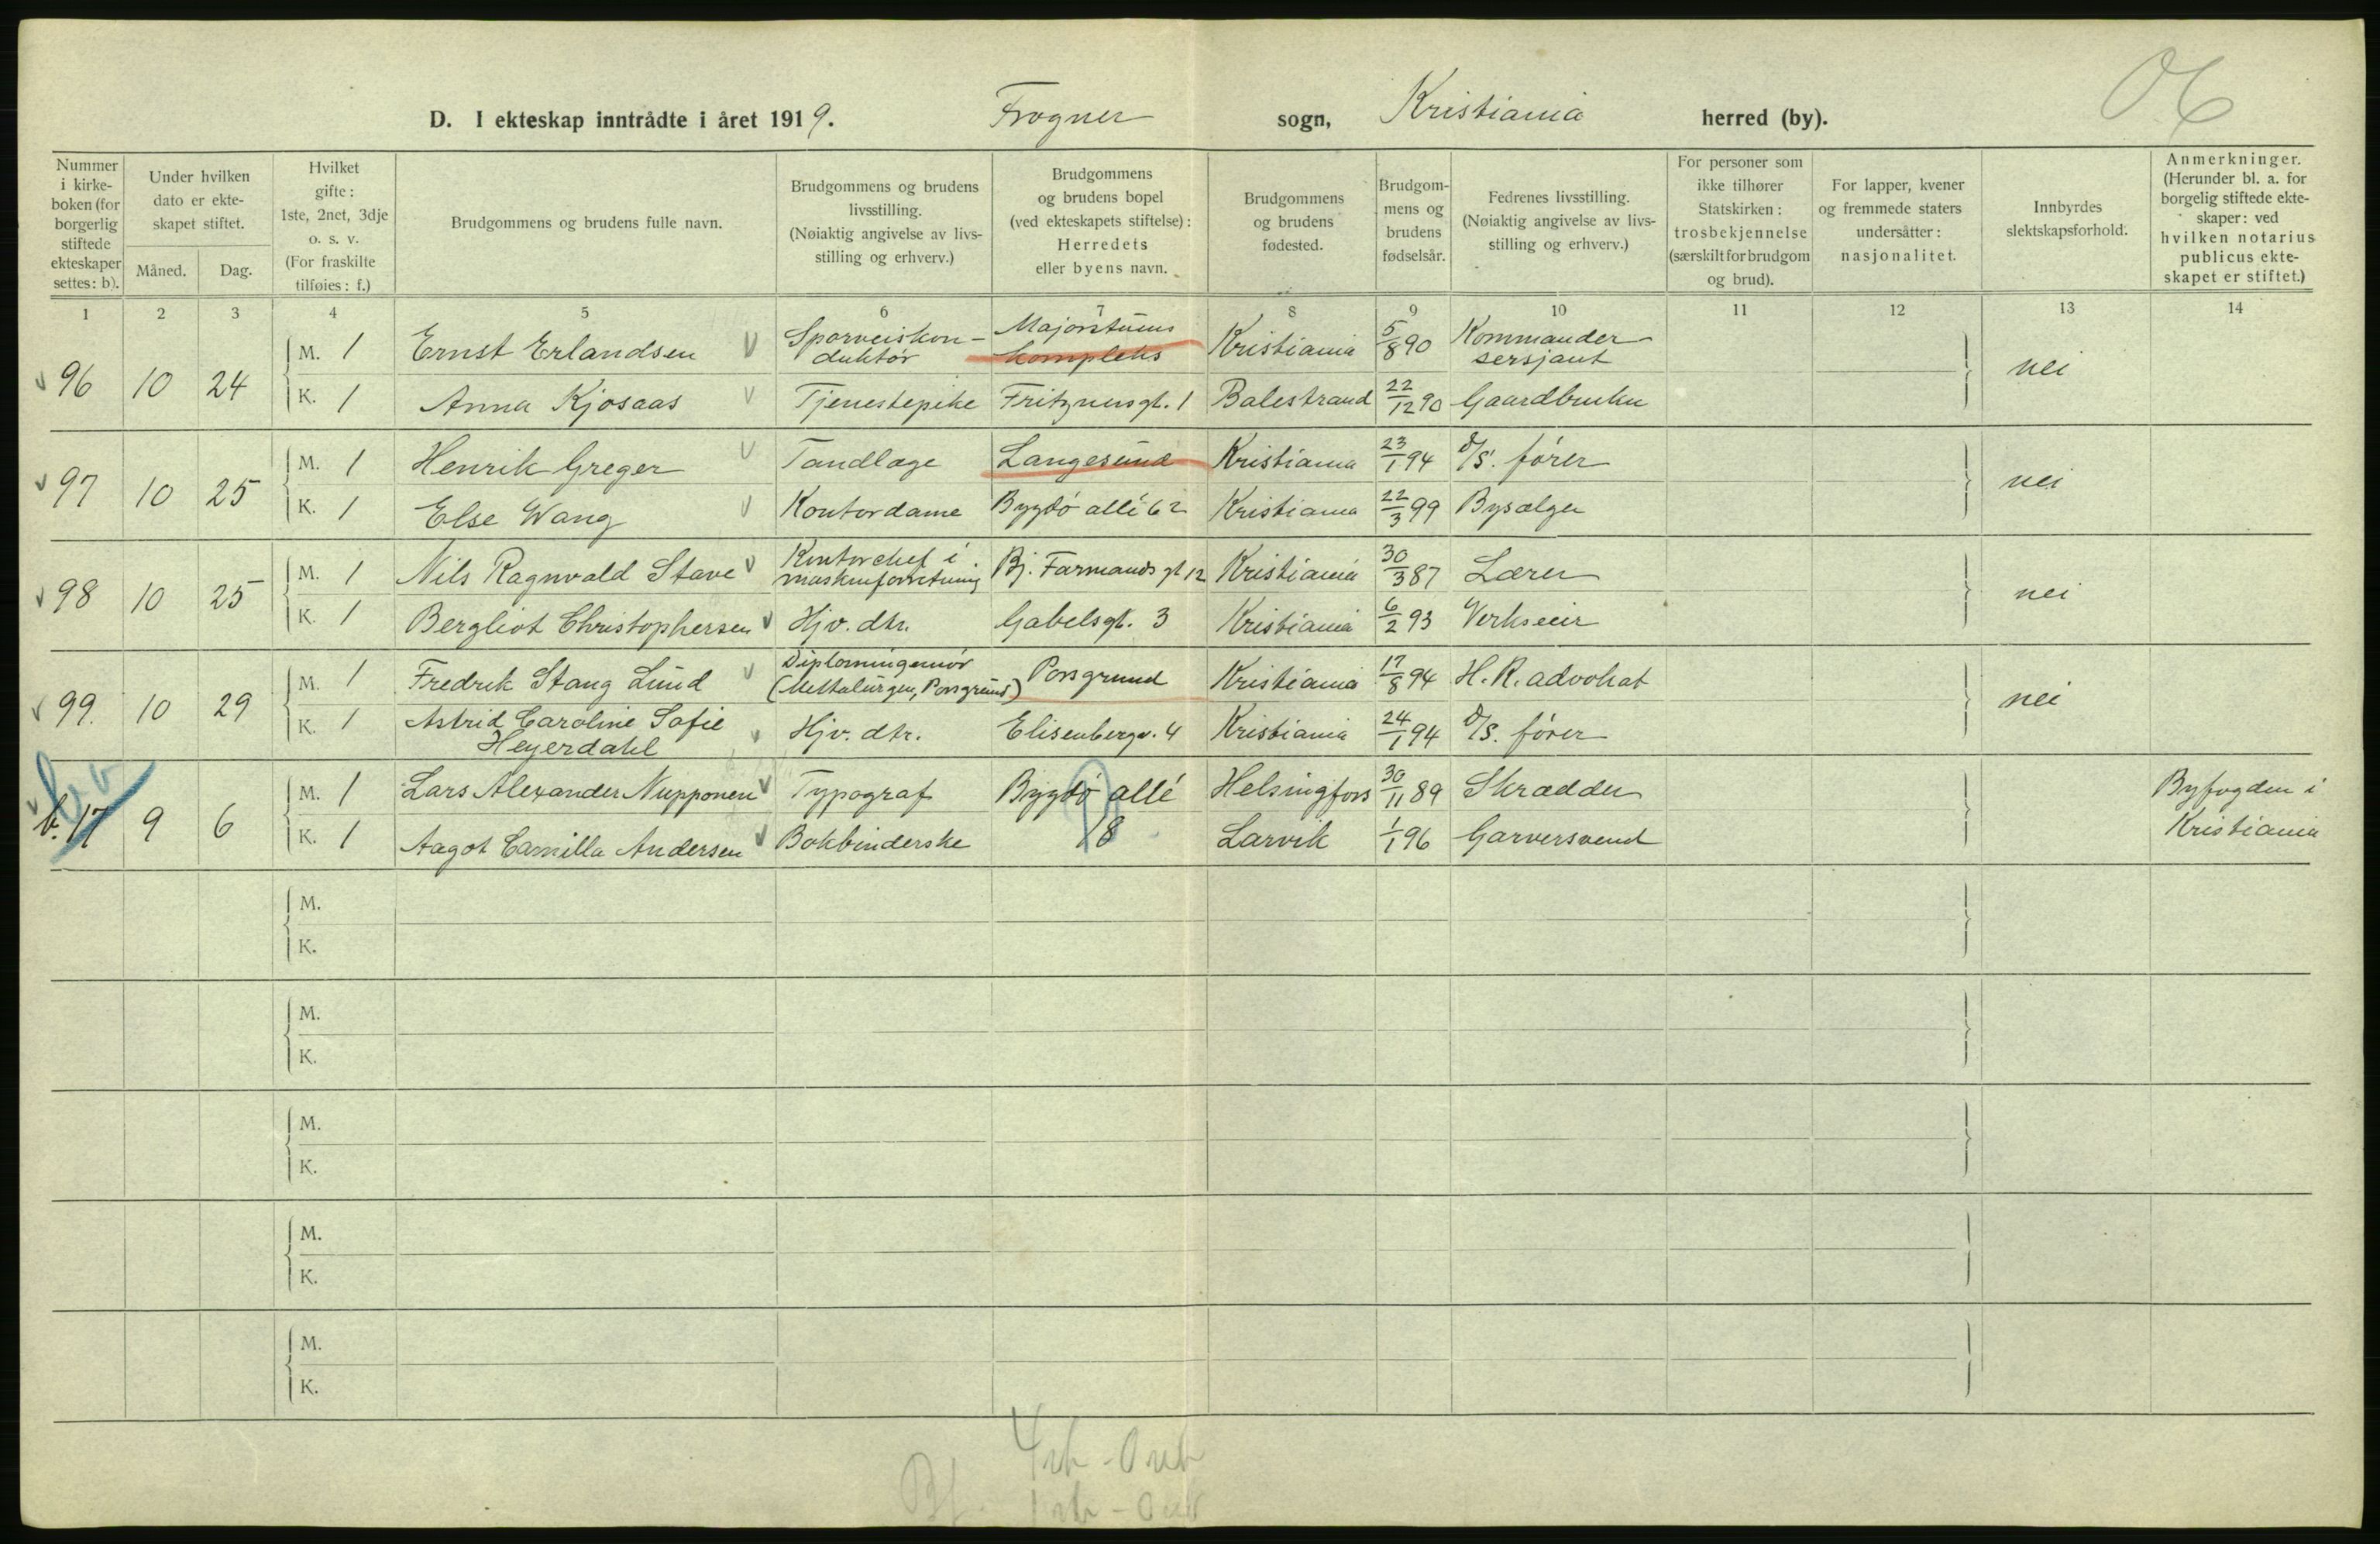 D. I ekteskap inntrådte i året 1919. Frogner sogn, Kristiania herred (by).
Nummer i kirkeboken (for borgerlig stiftede ekteskaper settes: b).
Under hvilken dato er ekteskapet stiftet.
Måned. Dag.
Hvilket gifte: 1ste, 2net, 3dje o. s. v. (For fraskilte tilføies: f.)
Brudgommens og brudens fulle navn.
Brudgommens og brudens livsstilling. (Nøiaktig angivelse av livsstilling og erhverv.)
Brudgommens og brudens bopel (ved ekteskapets stiftelse): Herredets eller byens navn.
Brudgommens og brudens fødested.
Brudgommens og brudens fødselsår.
Fedrenes livsstilling. (Nøiaktig angivelse av livsstilling og erhverv.)
For personer som ikke tilhører Statskirken: trosbekjennelse (særskilt for brudgom og brud).
For lapper, kvener og fremmede staters undersåtter: nasjonalitet.
Innbyrdes slektskapsforhold.
Anmerkninger. (Herunder bl. a. for borgelig stiftede ekteskaper: ved hvilken notarius publicus ekteskapet er stiftet.)
1 2 3 4 5 6 7 8 9 10 11 12 13 14
96 10 24 M. 1 Ernst Erlandsen Sporveiskonduktör Majorstuens kompleks Kristiania 5/8 90 Kommandersersjant nei
K. 1 Anna Kjosaas Tjenestepike Fritznersgt. 1 Balestrand 22/12 90 Gaardbruker
97 10 25 M. 1 Henrik Greger Tandlæge Langesund Kristiania 23/1 94 d/s. fører nei
K. 1 Else Wang Kontordame Bygdö allé 62 Kristiania 22/3 99 Bysælger
98 10 25 M. 1 Nils Ragnvald Stave Kontorchef i maskinforretning Bj. Farmands gt 12 Kristiania 30/3 87 Lærer nei
K. 1 Bergliot Christophersen Hjv. dtr. Gabelsgt. 3 Kristiania 6/2 93 Verkseier
99. 10 29 M. 1 Fredrik Stang Lund Diplomingeniör (Mettalurgen, Porsgrund) Porsgrund Kristiania 17/8 94 H. R. advokat nei
K. 1 Astrid Caroline Sofie Heyerdahl Hjv. dtr. Elisenbergv. 4 Kristiania 24/1 94 d/s. fører
b. 17 9 6 M. 1 Lars Alexander Nupponen Typograf Bygdö allé 18 Helsingfors 30/11 89 Skrædder Byfogden i Kristiania
K. 1 Aagot Camilla Andersen Bokbinderske Larvik 1/1 96 Garversvend
M.
K.
M.
K.
M.
K.
M.
K.
M.
K.